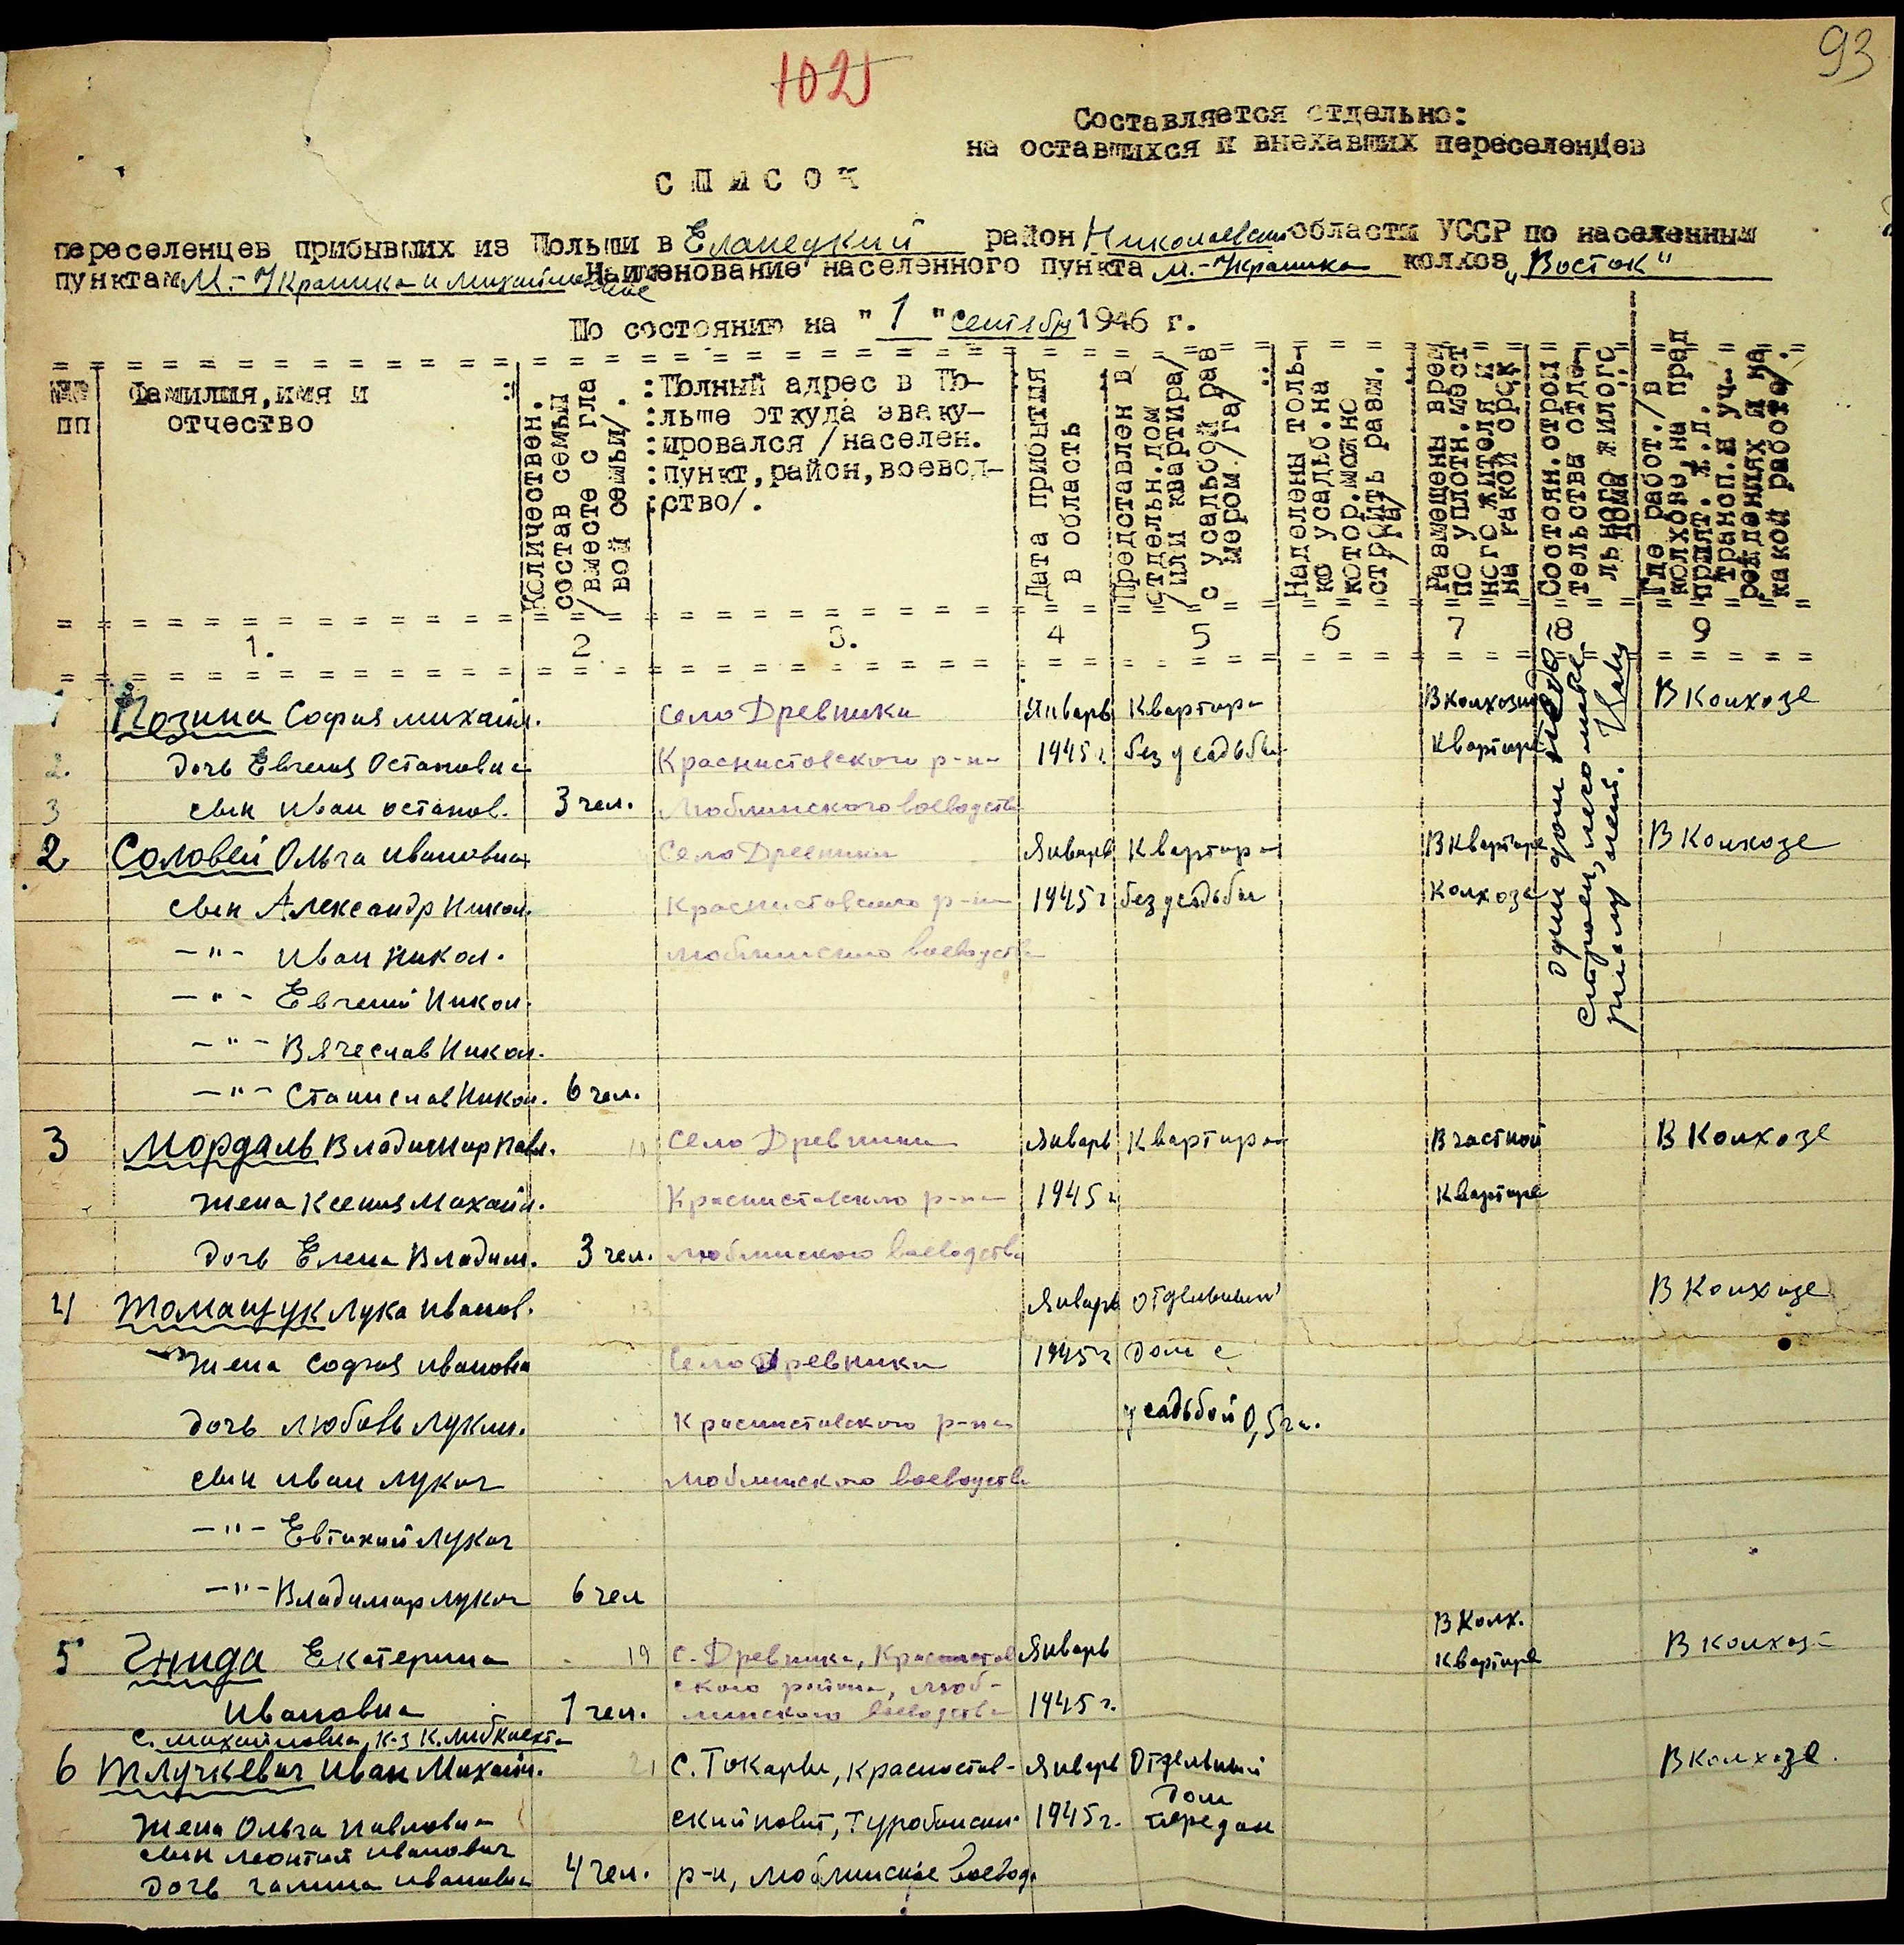 93
102
Составляется отдельно:
на оставшихся и внехавших переселенцев
С П И С О К
переселенцев прибывших из Польши в Еланецкий район Николаевской области УССР по населенным
пунктам М.-Украинка и Наименование населенного пункта М.-Украинка колхоз „Восток"
По состоянию на "1" сентября 1946 г.
№№ пп
Фамилия, имя и отчество
Количествен. состав семьи /вместе с гла вой семьи/.
:Полный адрес в По-
:льше откуда эваку-
:ировался /населен.
:пункт, район, воевод-
:ство/.
Дата прибытия в область
Предоставлен в отдельн.дом /или квартира/ с усадьбой раз мером /га/
Наделены толь- ко усадьб. на котор.можно строить разм. /га/
Размещены врем по уплотн.мест ного жителя и на какой срок
Состоян.строи тельства отде- льного жилого дома
Где работ./в колхозе, на пред прият. ж.д. трансп.и уч- реждениях и на какой работе/.
1. 2 3. 4 5 6 7 8 9
1 Позина София Михайл. Село Древники Январь Квартира В колхозн В Колхозе
2. дочь Евгения Остаповна Красноставского р-на 1945 г. без усадьбы Квартире
3 сын Иван Остапов. 3 чел. Люблинского воеводства
2 Соловей Ольга Ивановна Село Древники Январь Квартира В квартире В Колхозе
сын Александр Никол. Красноставского р-на 1945 г без усадьбы Колхоза
-"- Иван Никол. Люблинского воеводства
-"- Евгений Никол.
-"- Вячеслав Никол.
-"- Станислав Никол. 6 чел.
Один дом
строен,
3 Мордаль Владимир Павл. 11 Село Древники Январь Квартира В частной В Колхозе
жена Ксения Михайл. Красноставского р-на 1945 г Квартире
дочь Елена Владим. 3 чел. Люблинского воеводства
4 Томащук Лука Иванов. 13 Январь отдельный В Колхозе
жена София Ивановна Село Древники 1945 г Дом с
дочь Любовь Лукин. Красноставского р-на усадьбой 0,5 га.
сын Иван Лукич Люблинского воеводства
-"- Евтихий Лукич
-"- Владимир Лукич 6 чел
В Колх.
5 Гнида Екатерина 19 с. Древники, Красностав Январь Квартире В колхозе
ского района, Люб-
Ивановна 1 чел. линского воеводства 1945 г.
с. Михайловка, к-з К. Либкнехта
6 Тлучкевич Иван Михайл. 21 с. Токары, Красностав- Январь Отдельный В колхозе.
Дом
жена Ольга Павловна ский повит, Туробинский 1945 г. передан
сын Леонтий Иванович
дочь Галина Ивановна 4 чел. р-н, Люблинское воевод.